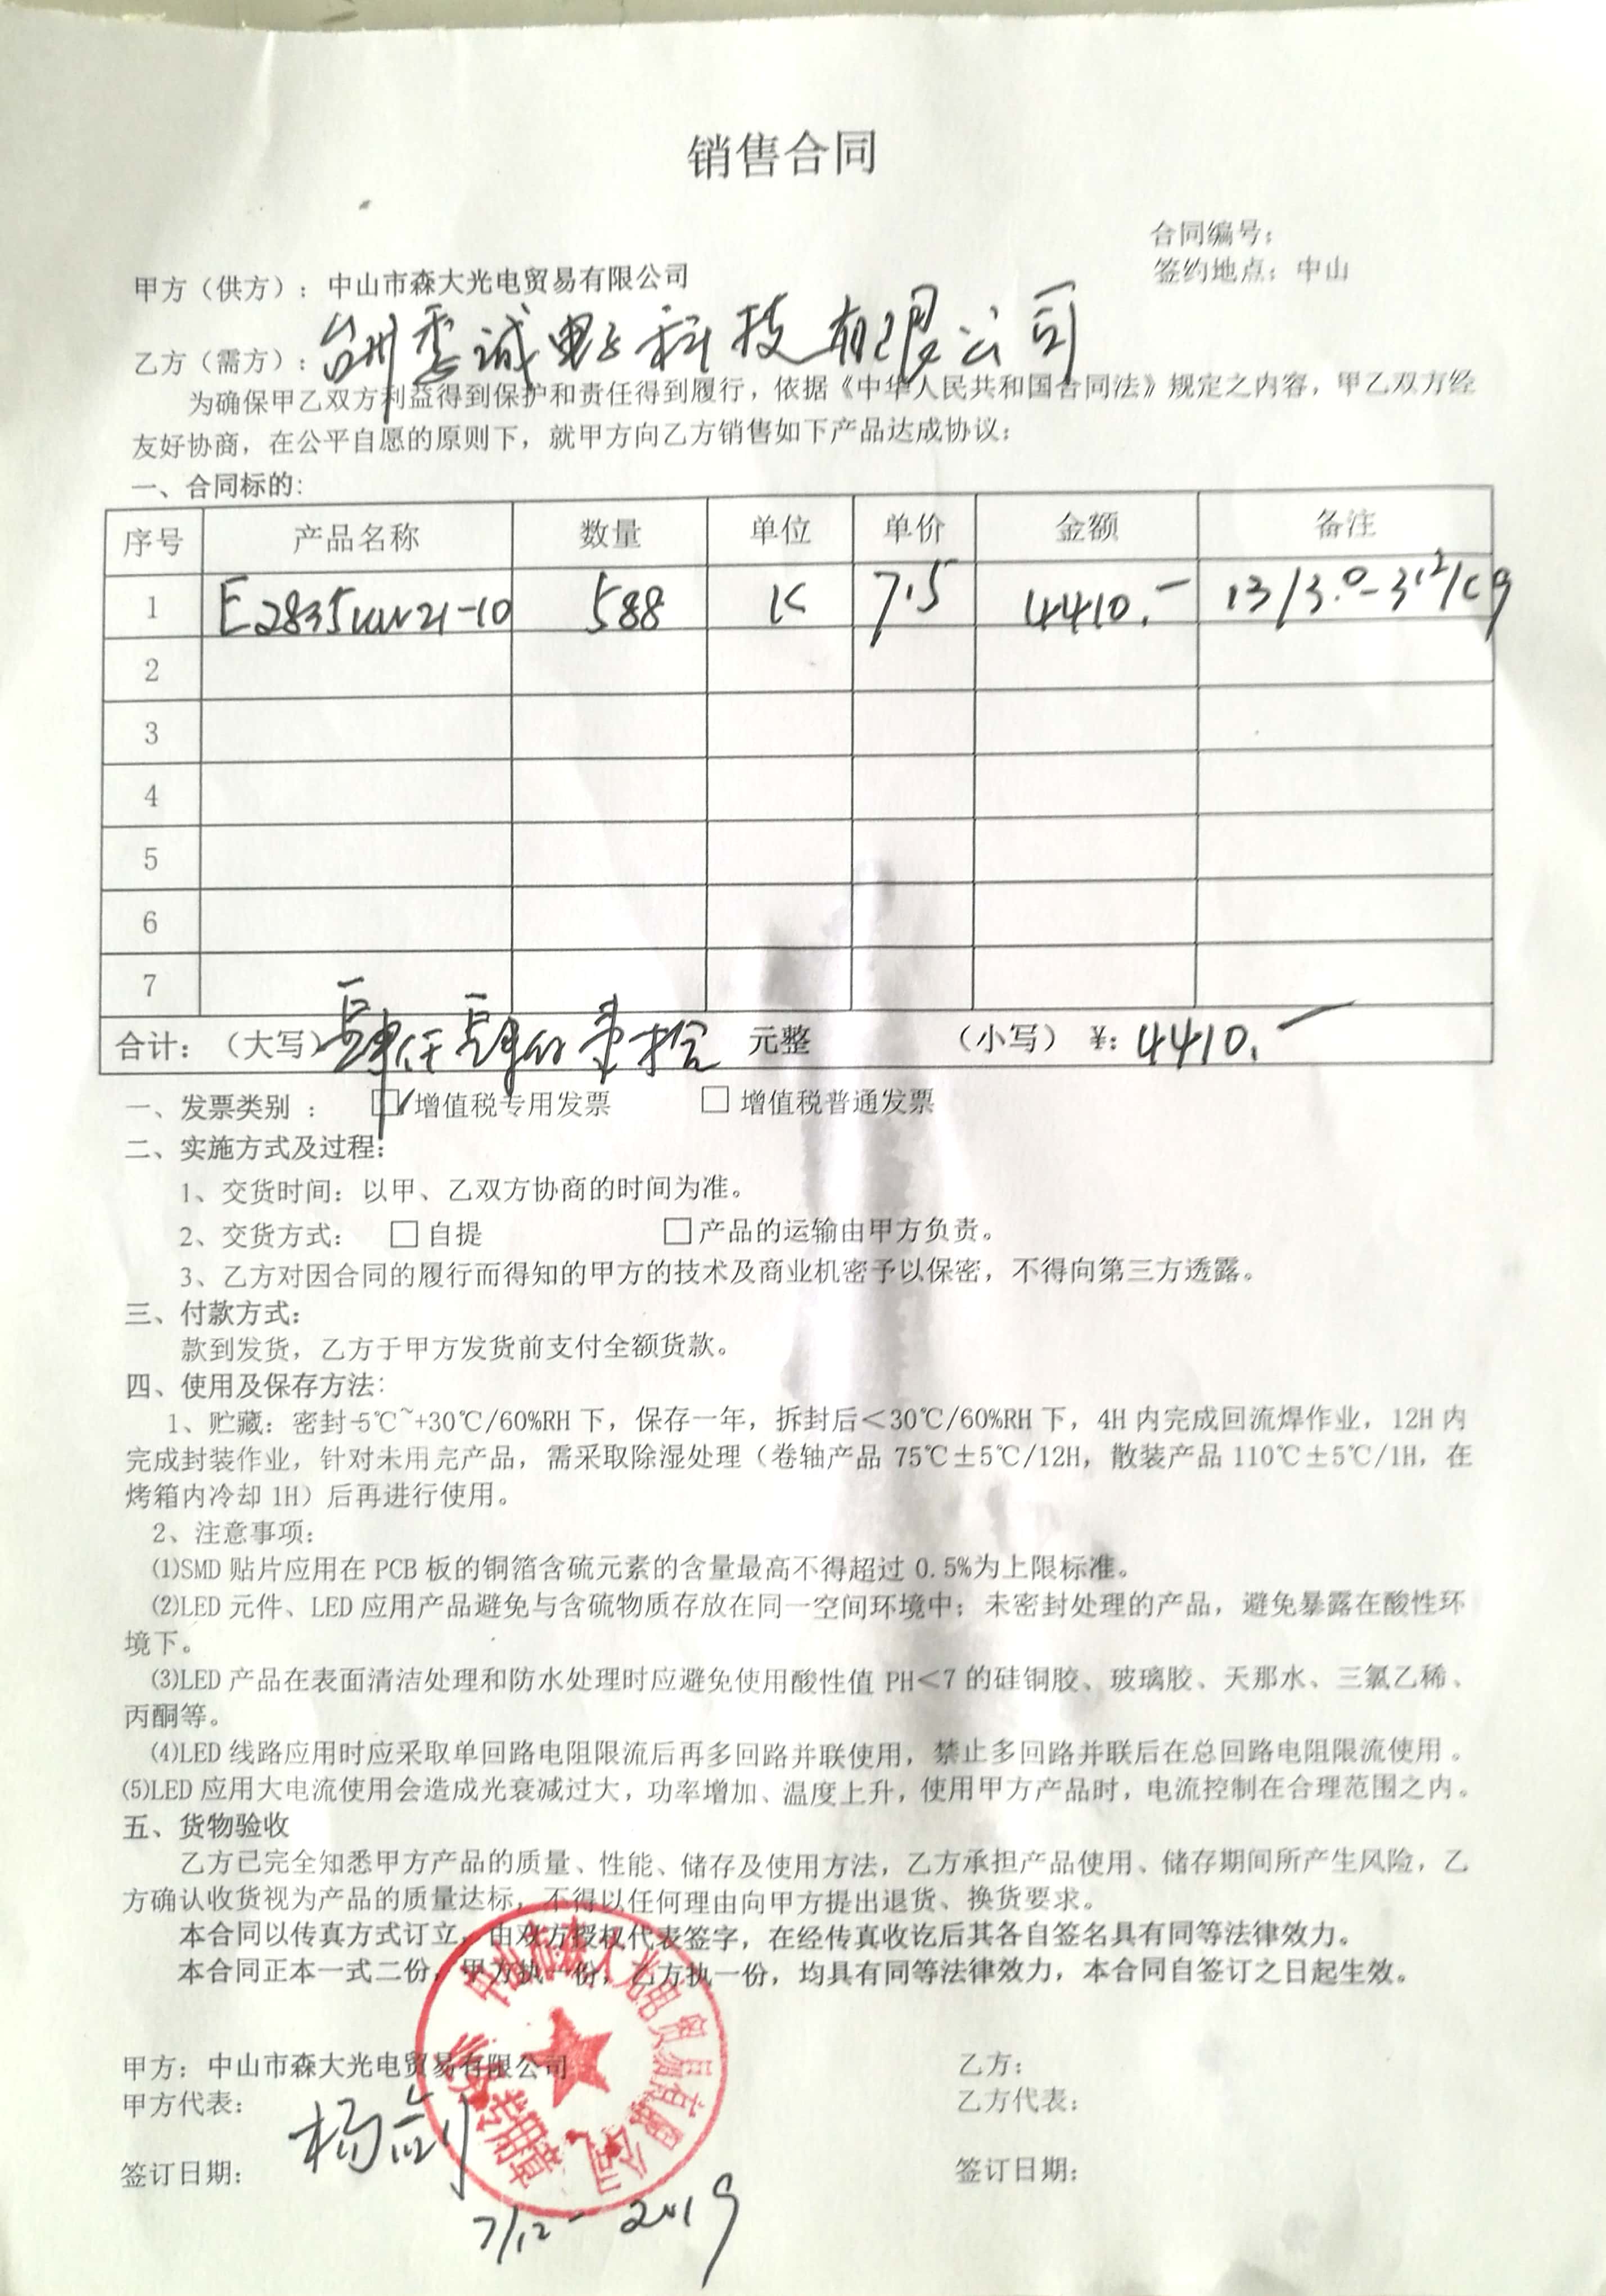 销售合同
合同编号：
签约地点：中山
甲方（供方）：中山市森大光电贸易有限公司
乙方（需方）：台州秀诚电子科技有限公司
为确保甲乙双方利益得到保护和责任得到履行，依据《中华人民共和国合同法》规定之内容，甲乙双方经
友好协商，在公平自愿的原则下，就甲方向乙方销售如下产品达成协议：
一、合同标的：
序号 产品名称 数量 单位 单价 金额 备注
1 E2835UW21-10 588 K 7.5 4410.- 13/3.0-3.2/C9
2
3
4
5
6
7
合计：（大写）肆仟肆佰壹拾 元整 （小写）¥：4410.-
一、发票类别 ： ☑增值税专用发票 □ 增值税普通发票
二、实施方式及过程：
1、交货时间：以甲、乙双方协商的时间为准。
2、交货方式： □ 自提 □产品的运输由甲方负责。
3、乙方对因合同的履行而得知的甲方的技术及商业机密予以保密，不得向第三方透露。
三、付款方式：
款到发货，乙方于甲方发货前支付全额货款。
四、使用及保存方法：
1、贮藏：密封-5℃~+30℃/60%RH 下，保存一年，拆封后＜30℃/60%RH 下，4H 内完成回流焊作业，12H 内
完成封装作业，针对未用完产品，需采取除湿处理（卷轴产品 75℃±5℃/12H，散装产品 110℃±5℃/1H，在
烤箱内冷却 1H）后再进行使用。
2、注意事项：
⑴SMD 贴片应用在 PCB 板的铜箔含硫元素的含量最高不得超过 0.5%为上限标准。
⑵LED 元件、LED 应用产品避免与含硫物质存放在同一空间环境中；未密封处理的产品，避免暴露在酸性环
境下。
⑶LED 产品在表面清洁处理和防水处理时应避免使用酸性值 PH＜7 的硅铜胶、玻璃胶、天那水、三氯乙稀、
丙酮等。
⑷LED 线路应用时应采取单回路电阻限流后再多回路并联使用，禁止多回路并联后在总回路电阻限流使用 。
⑸LED 应用大电流使用会造成光衰减过大，功率增加、温度上升，使用甲方产品时，电流控制在合理范围之内。
五、货物验收
乙方已完全知悉甲方产品的质量、性能、储存及使用方法，乙方承担产品使用、储存期间所产生风险，乙
方确认收货视为产品的质量达标，不得以任何理由向甲方提出退货、换货要求。
本合同以传真方式订立，由双方授权代表签字，在经传真收讫后其各自签名具有同等法律效力。
本合同正本一式二份，甲方执一份，乙方执一份，均具有同等法律效力，本合同自签订之日起生效。
甲方：中山市森大光电贸易有限公司 乙方：
甲方代表：杨剑 乙方代表：
签订日期：7/12-2019 签订日期：